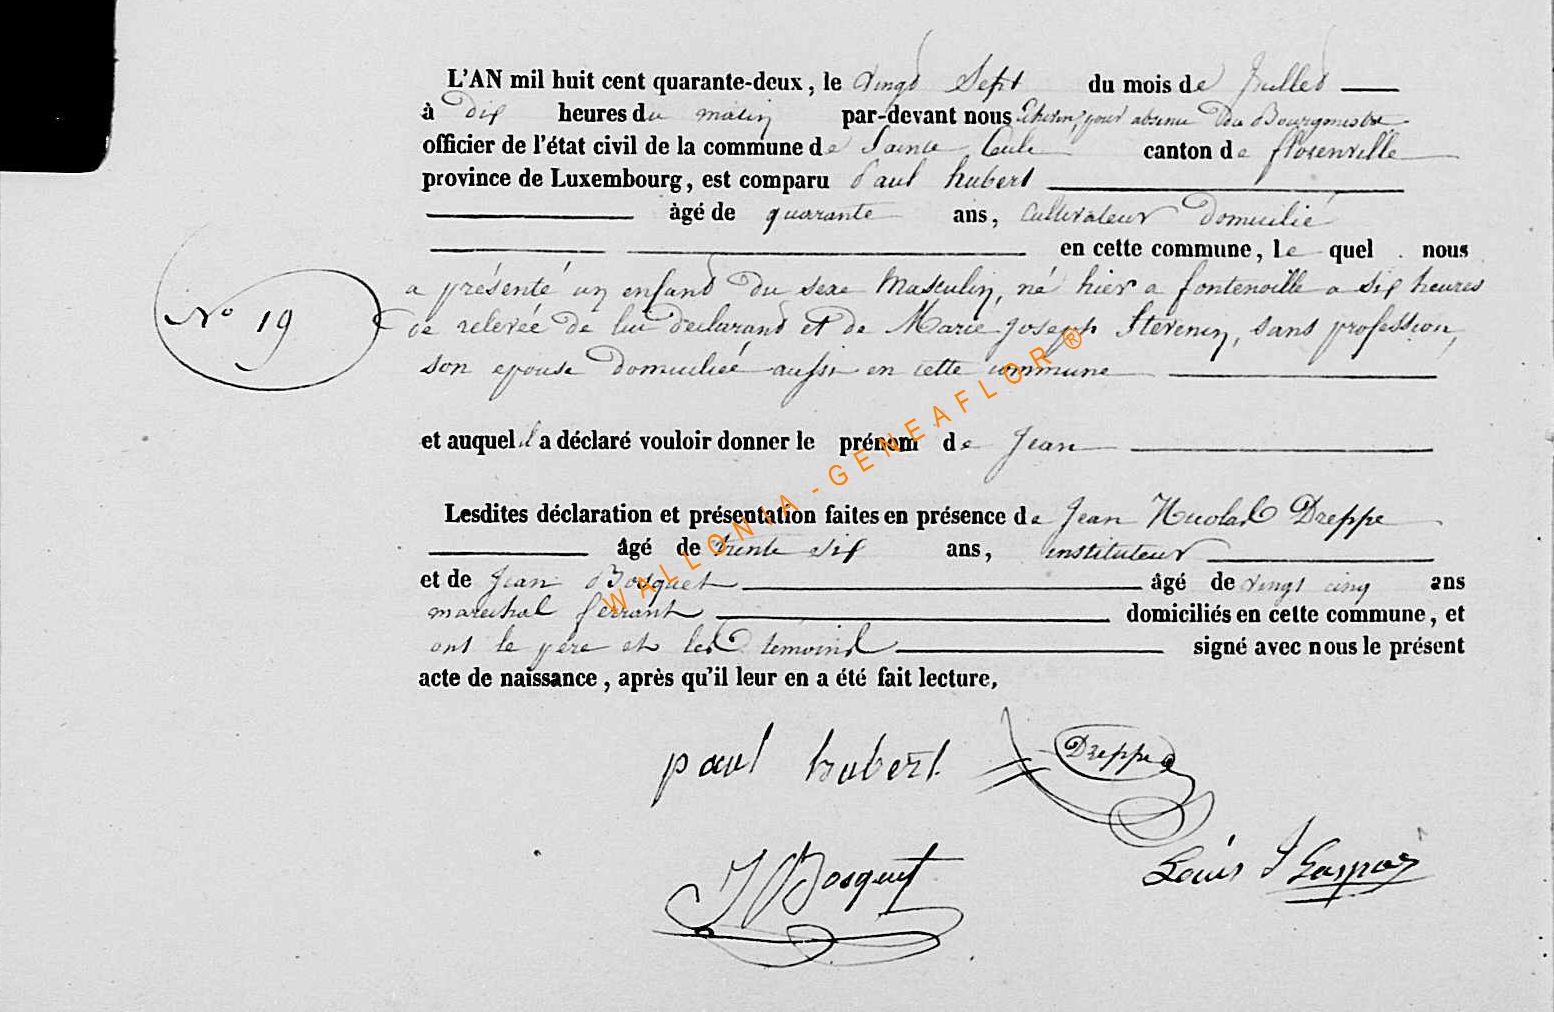 L'AN mil huit cent quarante-deux, le vingt Sept du mois de Juillet
à dix heures du matin par-devant nous Echevin, pour absence du Bourgmestre
officier de l'état civil de la commune de Sainte Cecile canton de florenville
province de Luxembourg, est comparu Paul hubert
âgé de quarante ans, cultivateur domicilié
en cette commune, le quel nous
a présenté un enfant du sexe Masculin, né hier a fontenoille a six heures
No 19
de relevée de lui déclarant et de Marie Joseph Stevenin, sans profession,
son epouse domiciliée aussi en cette commune
et auquel il a déclaré vouloir donner le prénom de Jean
Lesdites déclaration et présentation faites en présence de Jean Nicolas Dreppe
âgé de trente six ans, instituteur
et de Jean Bosquet âgé de vingt cinq ans
marechal ferrant domiciliés en cette commune, et
ont le père et les témoins signé avec nous le présent
acte de naissance, après qu'il leur en a été fait lecture,
paul hubert Dreppe
J Bosquet Louis J
WALLONIA-GENEAFLOR ®